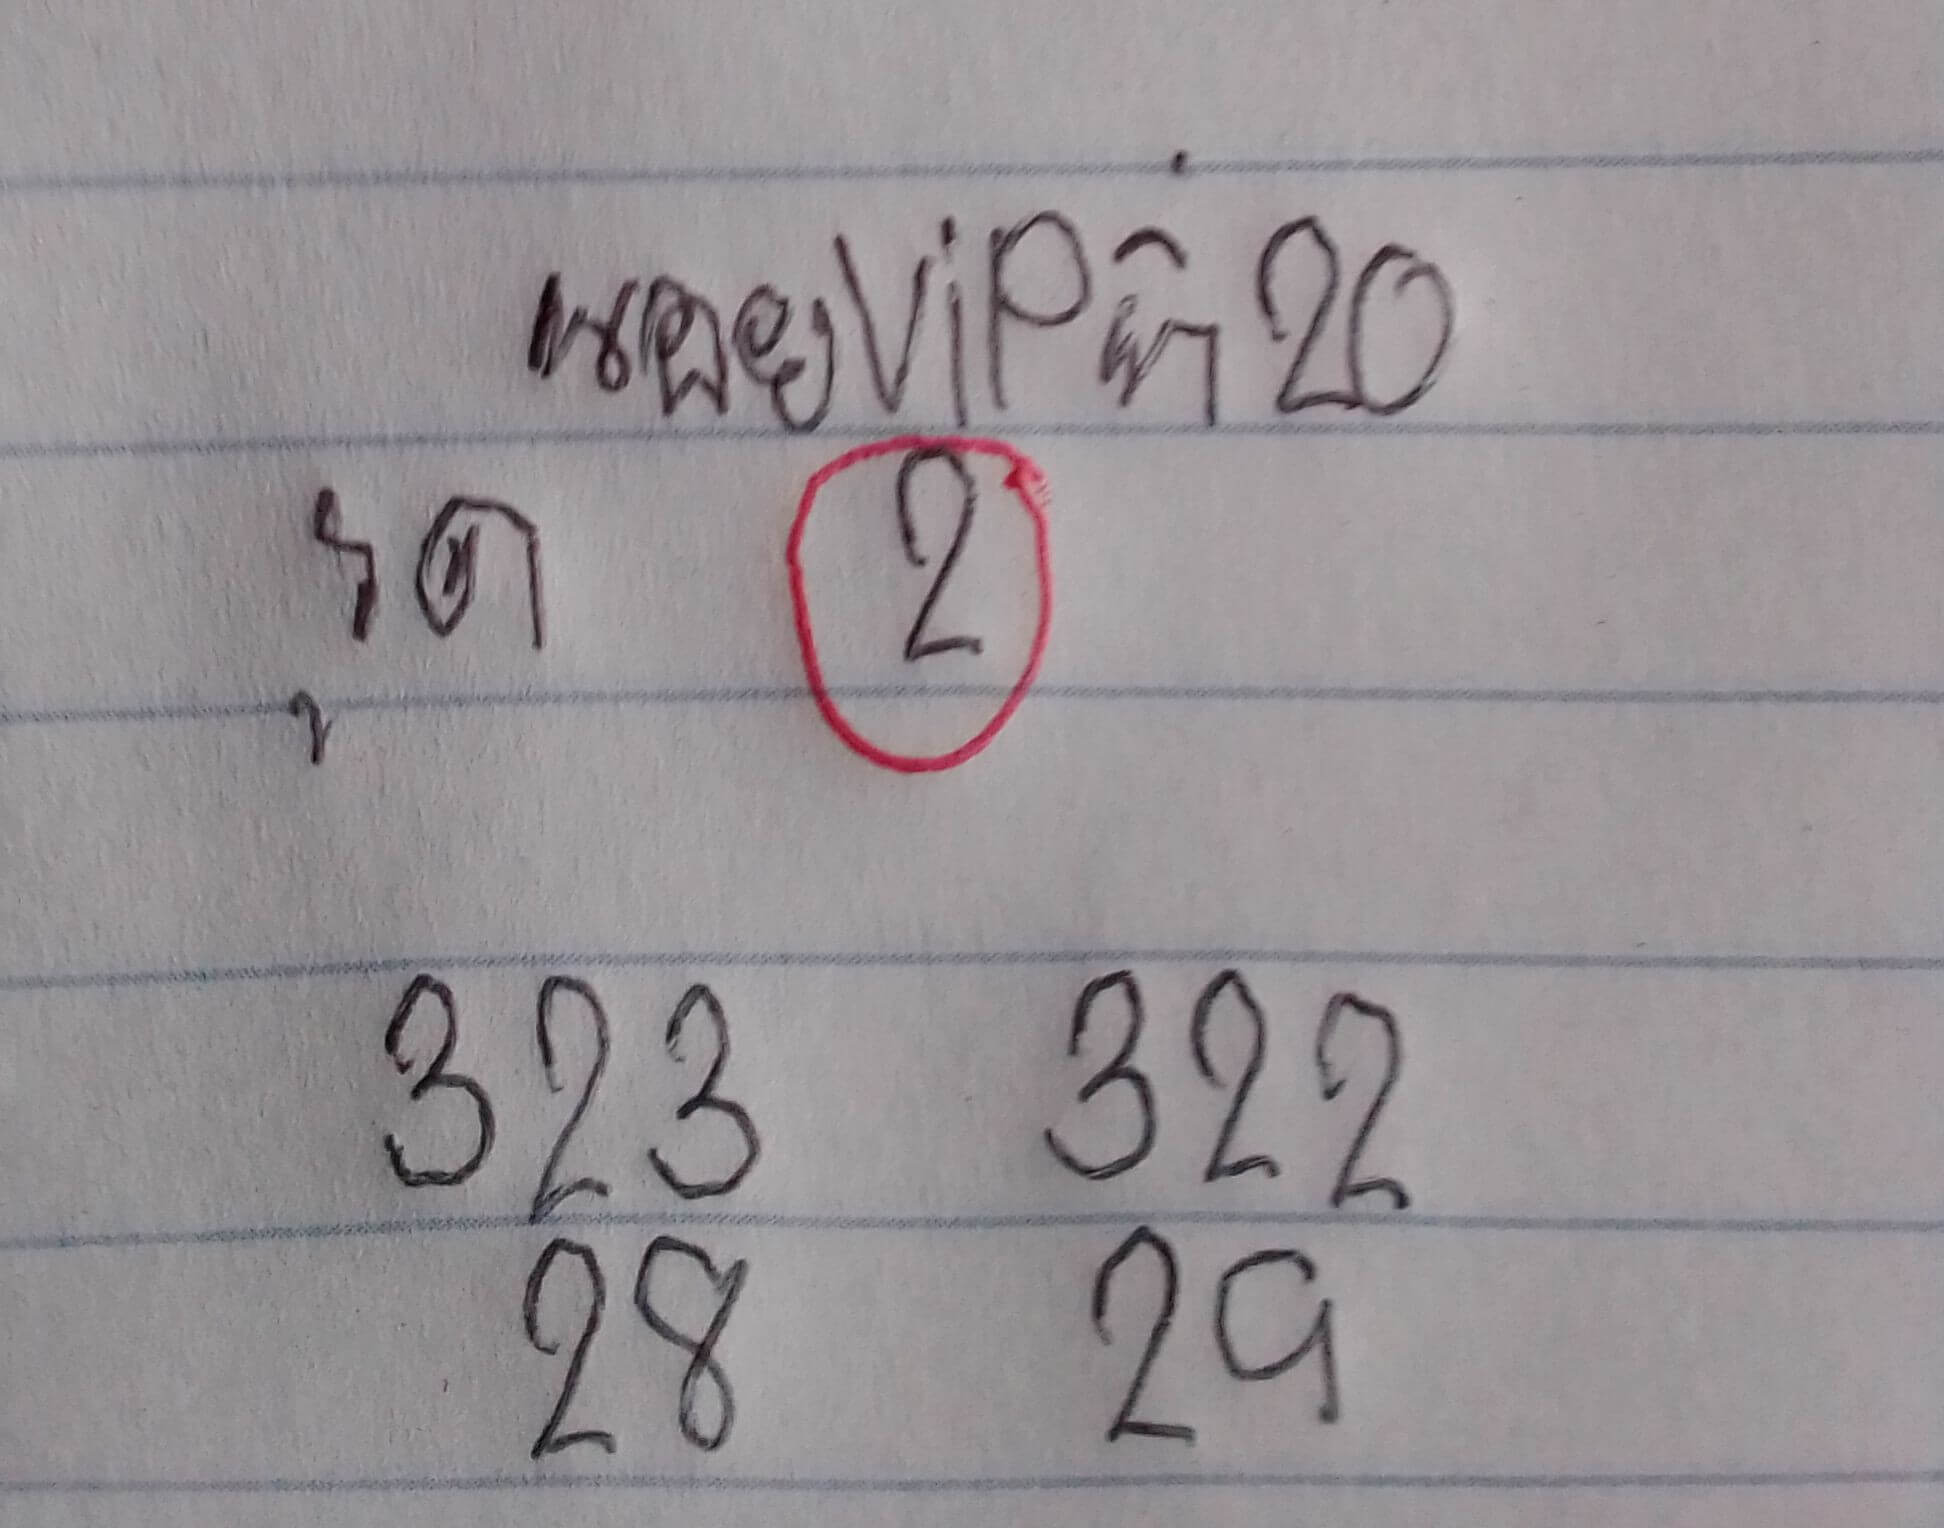 หอยVIPที่20
รูด 2
323 322
28 29